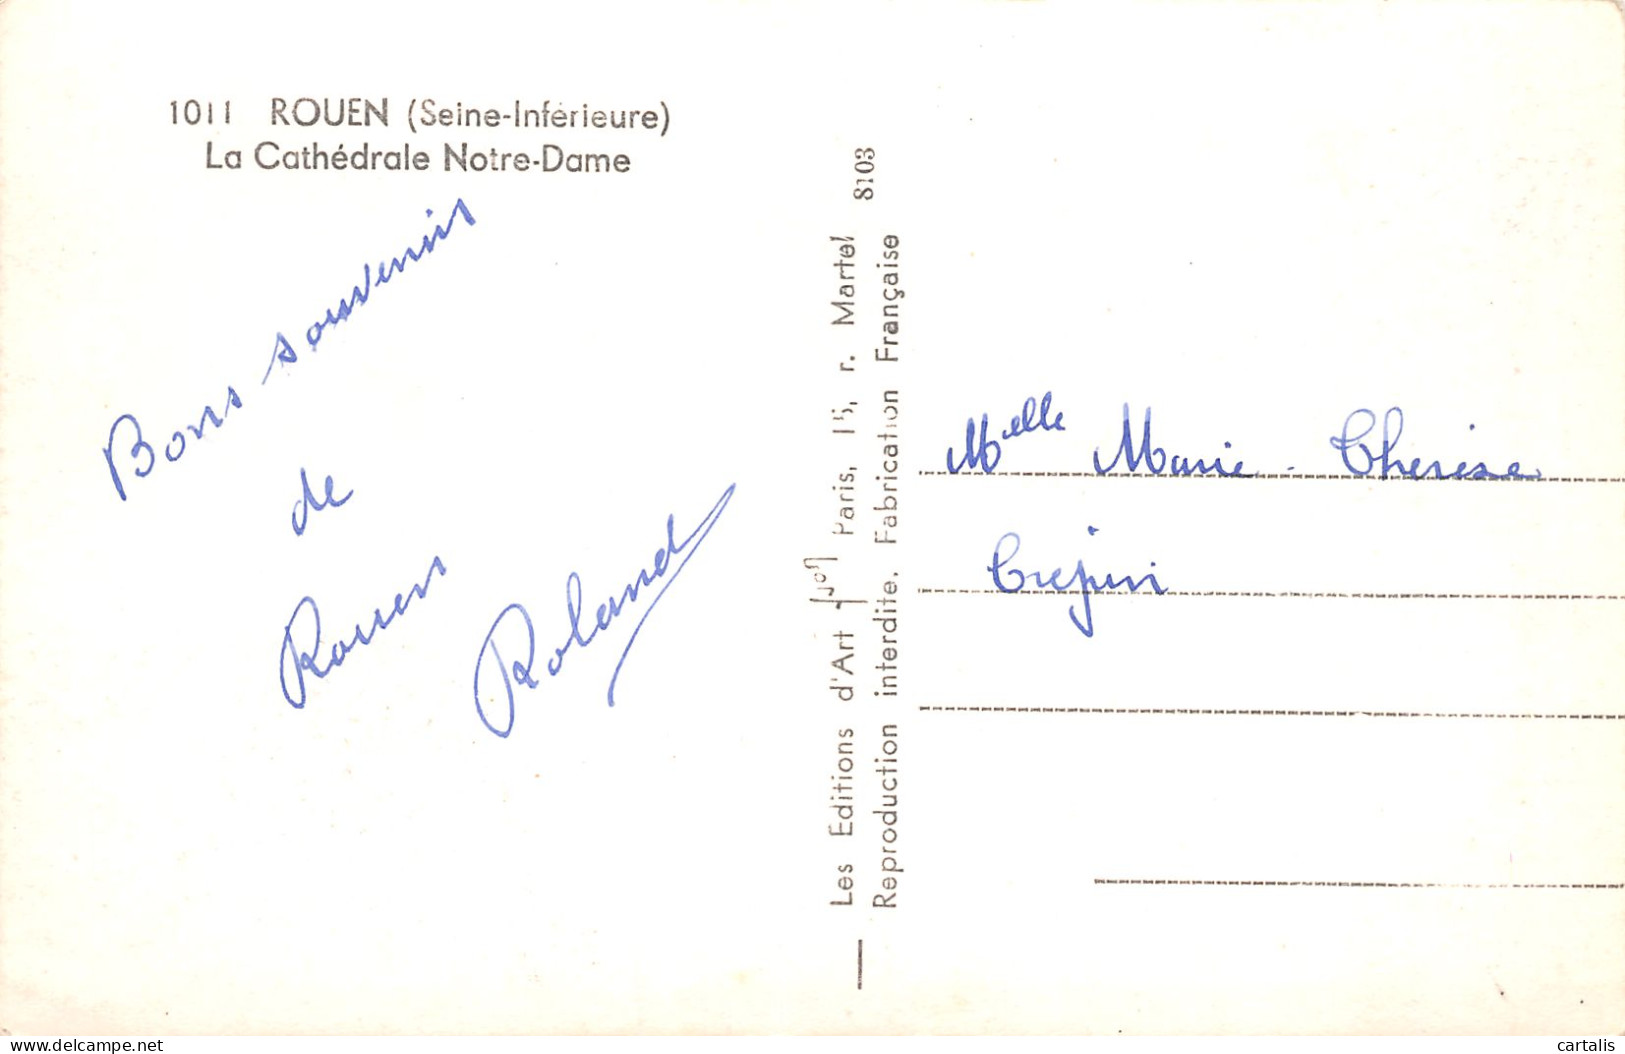 1011 ROUEN (Seine-Inférieure)
La Cathédrale Notre-Dame
Bons souvenirs
de
Rouen
Roland
Les Editions d'Art Yvon Paris, 15, r. Martel
Reproduction interdite. Fabrication Française
8103
Melle Marie-Therese
Crepin
delcampe.net
cartalis